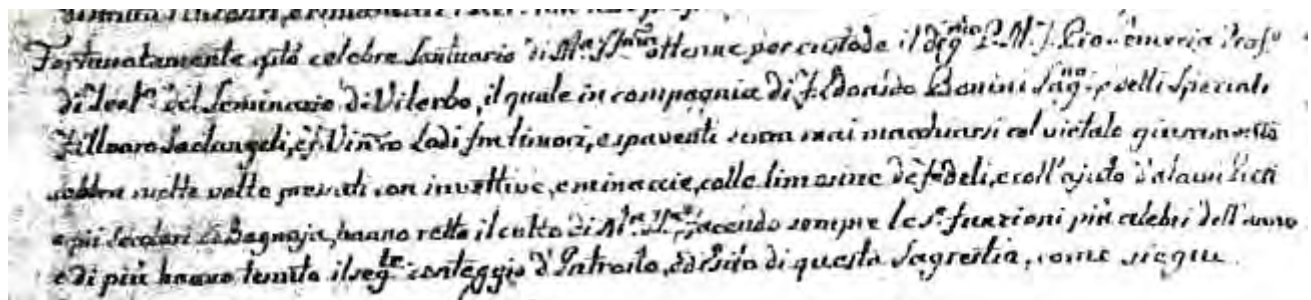 Fortunatamente qsto celebre Santuario di Ma SSma ottenne per custode il degmo P. M. F. Pio Profe
di Teola del Seminario di Viterbo, il quale in compagnia di F. Edoardo Bonini Sagno, e delli Speziali
F. Illuaro Sadangeli, e F. Vinco Lodi fra timori, e spaventi senza mai macchiarsi col vietato giuramento
sebben molte volte pressati con invettive, e minaccie, colle limosine de fedeli, e coll'ajuto d'alcuni
e pii secolari di Bagnaja, hanno retto il culto di Ma SSma facendo sempre le Se funzioni più celebri dell'anno
e di più hanno tenuto il segte conteggio d'Introito, ed Esito di questa Sagrestia, come siegue.